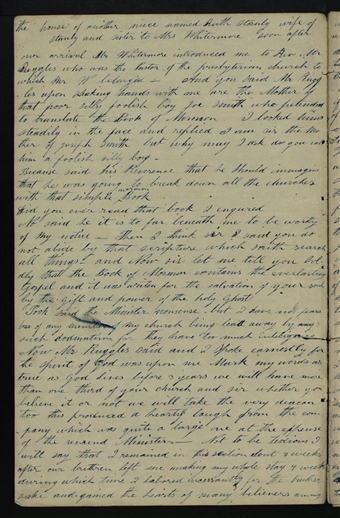 the house of another niece named Ruth Stanly wife of
Stanly and sister to Mrs Whitermore Soon after
our arrival Mr Whitermore introduced me to Rev Mr
Ruggles who was the pastor of the presbyterian church to
which Mr W belongs — And you said Mr Rugg
les upon shaking hands with me are the Mother of
that poor silly foolish boy Joe Smith who pretended
to translate the Book of Mormon I looked him
steadily in the face and replied I am sir the Mo
ther of Joseph Smith but why may I ask do you call
him a foolish silly boy —
Because said his Reverence that he should immagine
that he was going to break down all the churches
with that simple Book
Did you ever read that book I enquired
No said he it is to far beneath me to be worthy
of my notice — Then I think sir I said you do
not abide by that scripture which saith search
all things — and Now sir let me tell you bol
dly that the Book of Mormon contains the everlasting
Gospel and it was written for the salvation of your soul
by the gift and power of the holy Ghost
Pooh said the Minister nonsense but I have not fears
of any member of my church being lead away by any
such doctrine for they have too much intelligence
Now Mr Ruggles said and I spoke earnestly for
the spirit of God was upon me Mark my words as
true as God lives before 3 years we will have more
than one third of your church and sir whether you
believe it or not we will take the very deacon
too this produced a hearty laugh from the com
pany which was quite a large one at the expense
of the reverend Minister — Not to be tedious I
will say that I remained in this section about 4 weeks
after our brethren left me making my whole stay 4 weeks
during which time I labored incessantly for the truths
sake and gained the hearts of many believers among